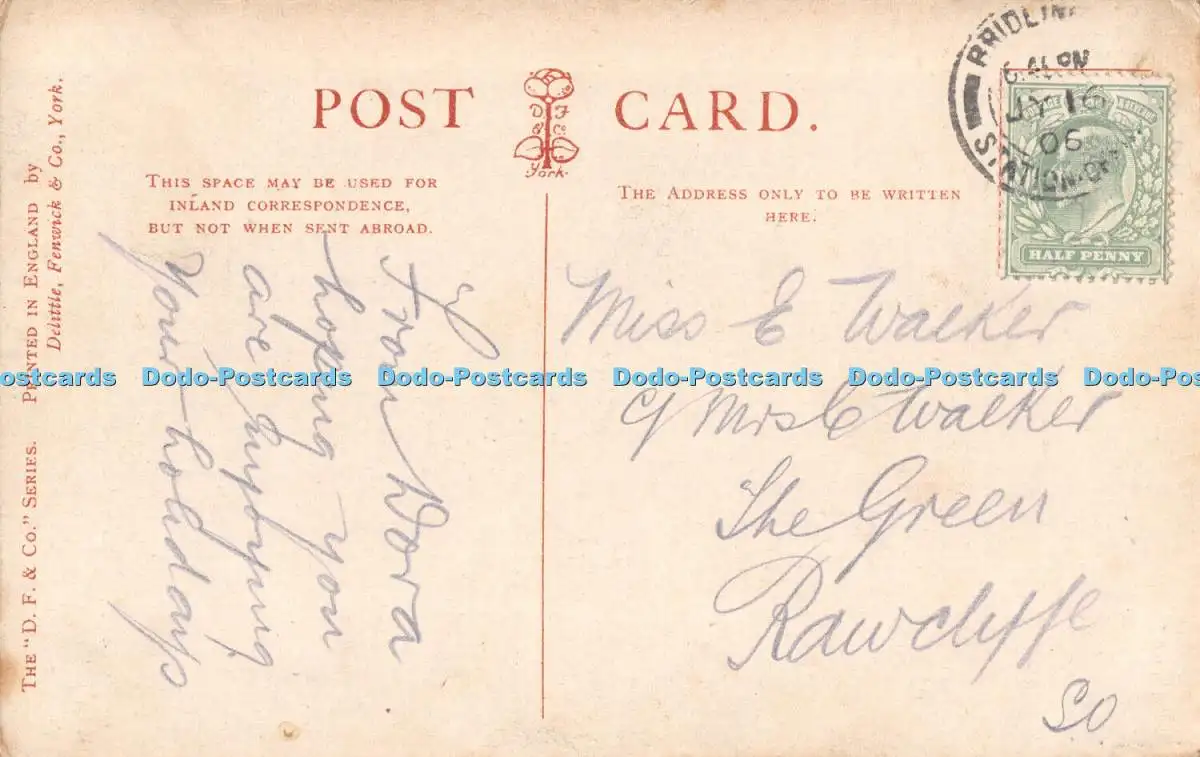 POST CARD.
D. F
& Co
York.
THIS SPACE MAY BE USED FOR
INLAND CORRESPONDENCE,
BUT NOT WHEN SENT ABROAD.
THE ADDRESS ONLY TO BE WRITTEN
HERE.
BRIDLIN
JY 16
06
STATION
HALF PENNY
THE "D. F. & CO." SERIES. PRINTED IN ENGLAND by
Delittle, Fenwick & Co., York.
From Dora
hoping you
are enjoying
your holidays
Miss E Walker
c/ Mrs C Walker
The Green
Rawcliffe
S.O
Dodo-Postcards Dodo-Postcards Dodo-Postcards Dodo-Postcards Dodo-Postcards